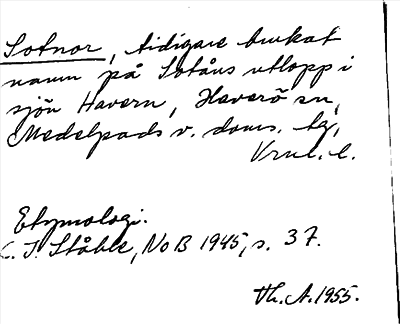 Sotnor, tidigare brukat
namn på Sotåns utlopp i
sjön Havern, Haverö sn,
Medelpads v. doms. tg,
Vrnl. l.
Etymologi.
C. I. Ståhle, NoB 1945, s. 37.
Th. A. 1955.